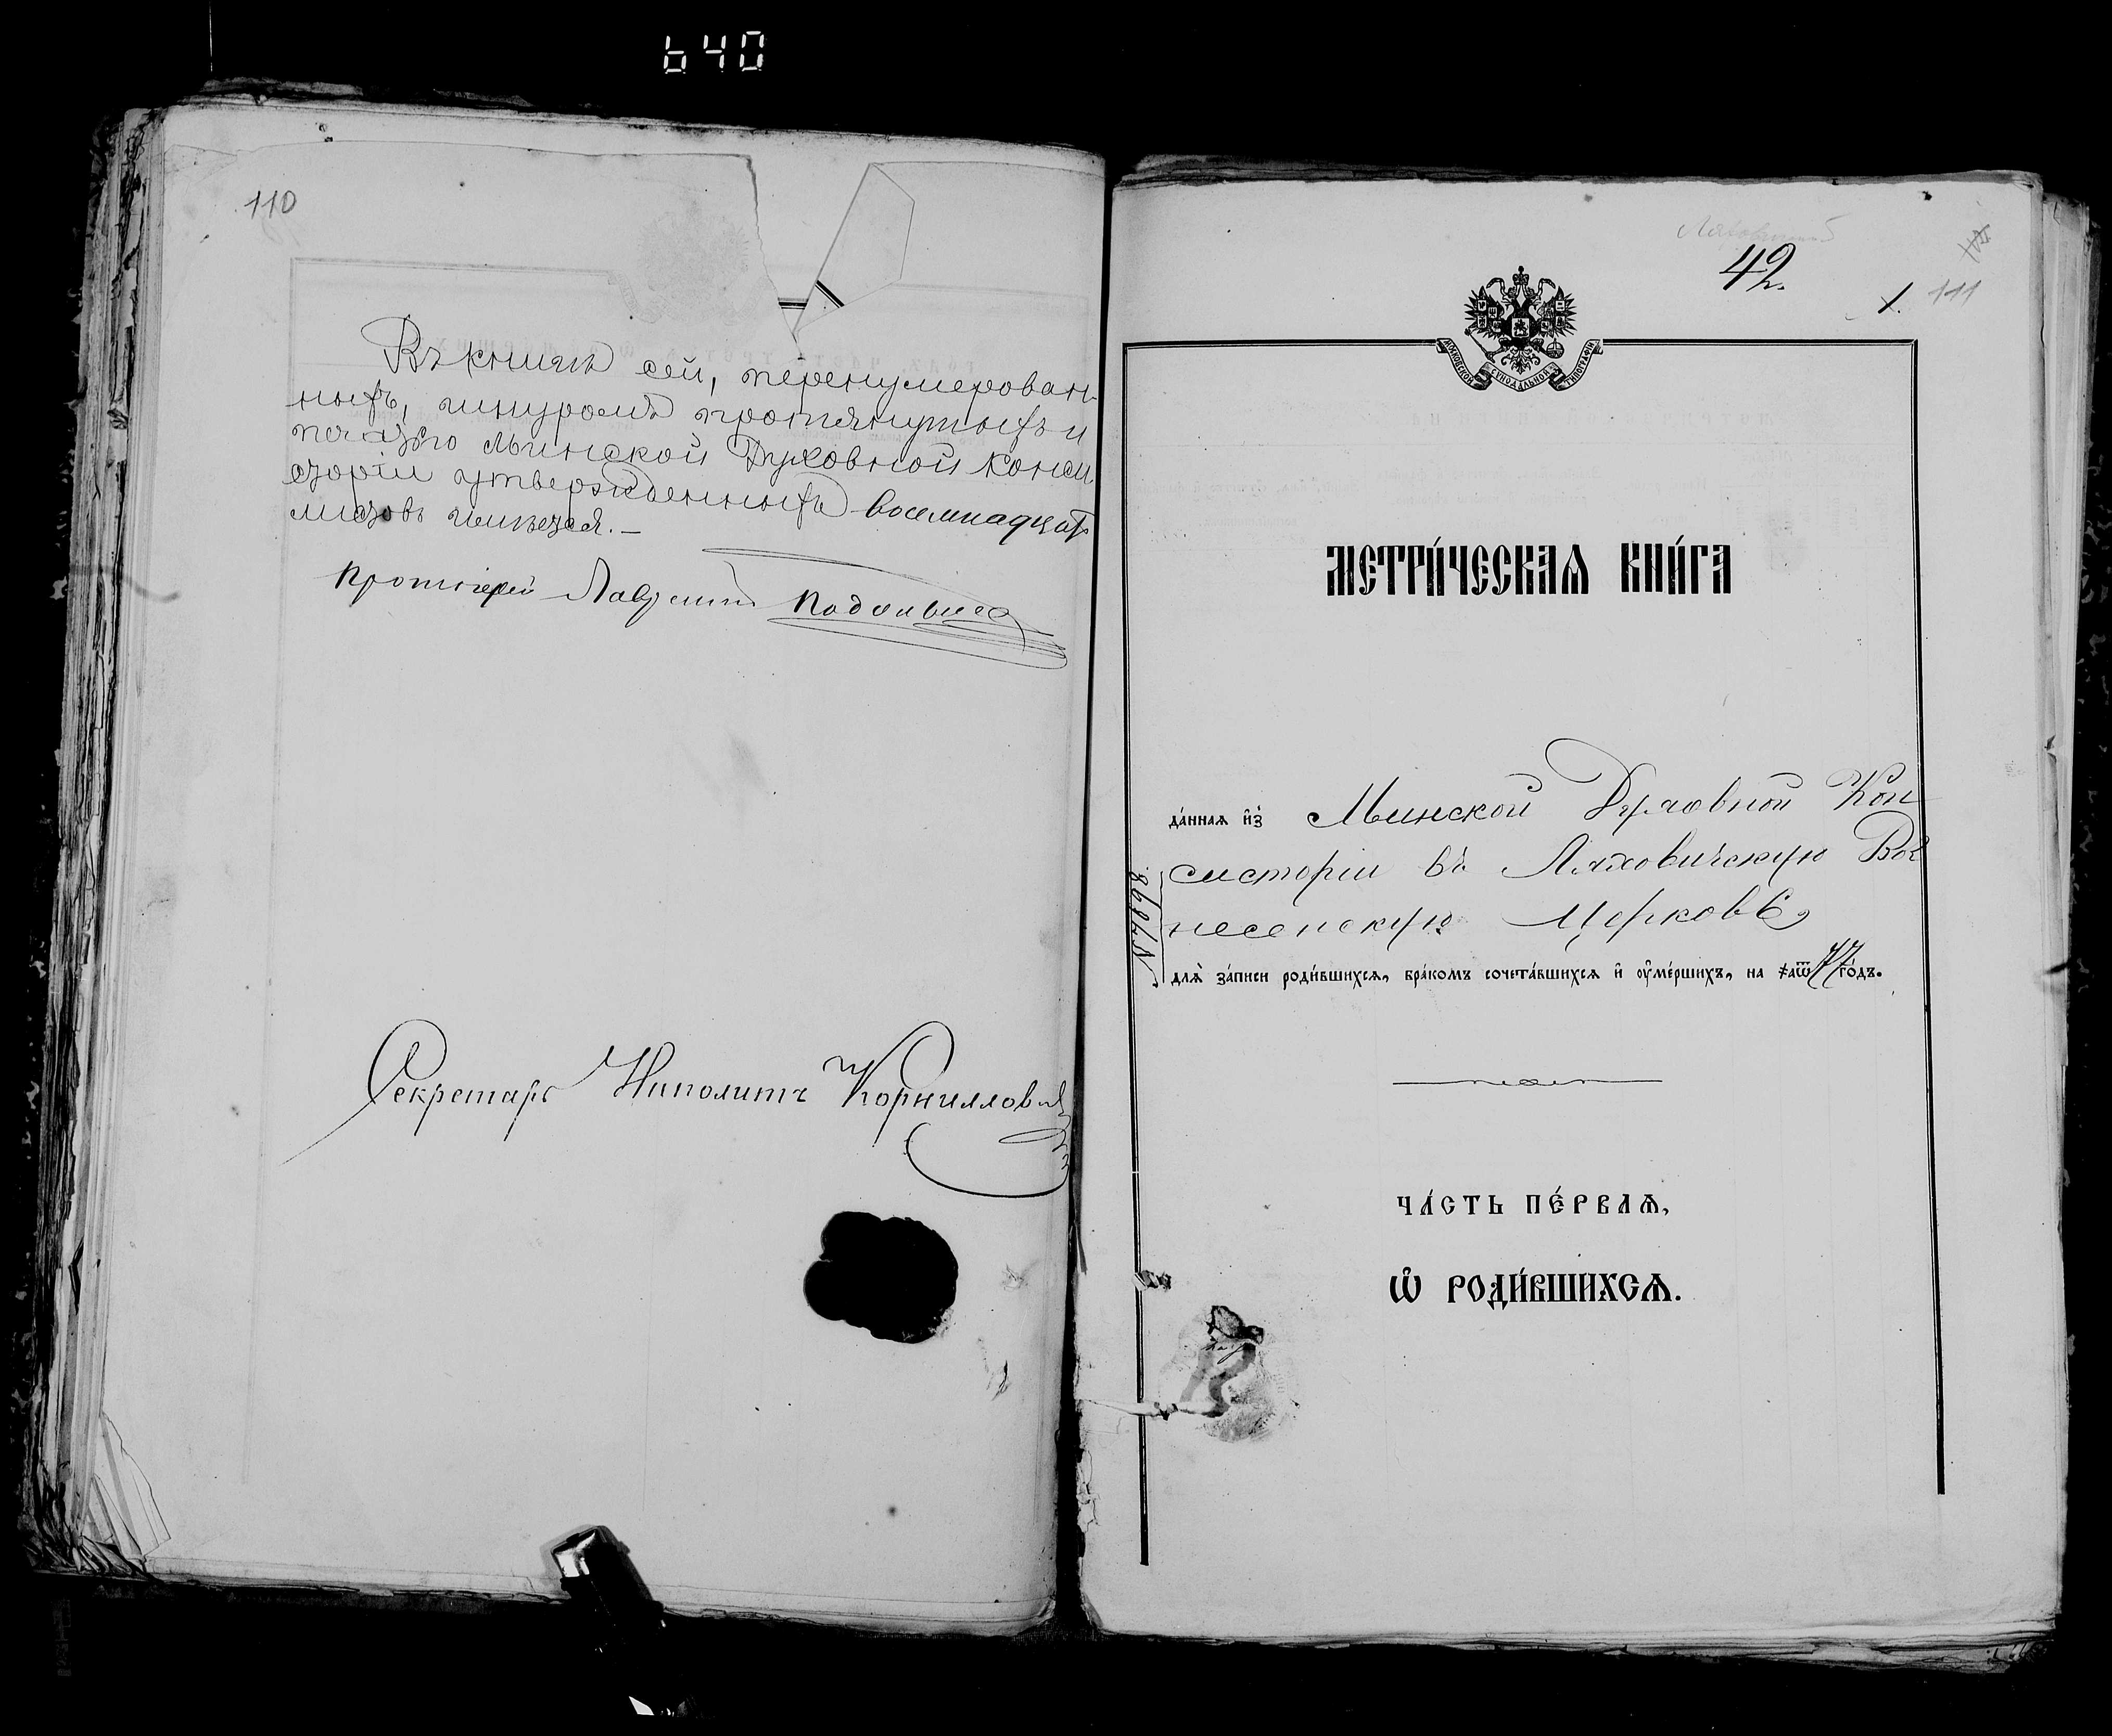 640
110
Въ книгѣ сей, перенумерован-
ныхъ, шнуромъ протянутыхъ и
печатью Минской Духовной Конси
сторіи утвержденныхъ восемнадцать
листовъ имѣется.—
Протоіерей Лаврентій
Секретарь Ипполитъ Корнилловичъ
42.
1.
111
МОСКОВСКОЙ СѴНОДАЛЬНОЙ ТИПОГРАФІИ
МЕТРИ́ЧЕСКАѦ КНИ́ГА
да́ннаѧ и҆з̾ Минской Духовной Кон
систоріи въ Ляховичскую Воз
несенскую Церковь
№ 7098
для̀ за́писи роди́вшихсѧ, бра́комъ сочета́вшихсѧ и҆ ᲂу҆ме́ршихъ, на ҂аѿ77 го́дъ.
ЧА́СТЬ ПЕ́РВАѦ,
Ѡ҆ РОДИ́ВШИХСѦ.